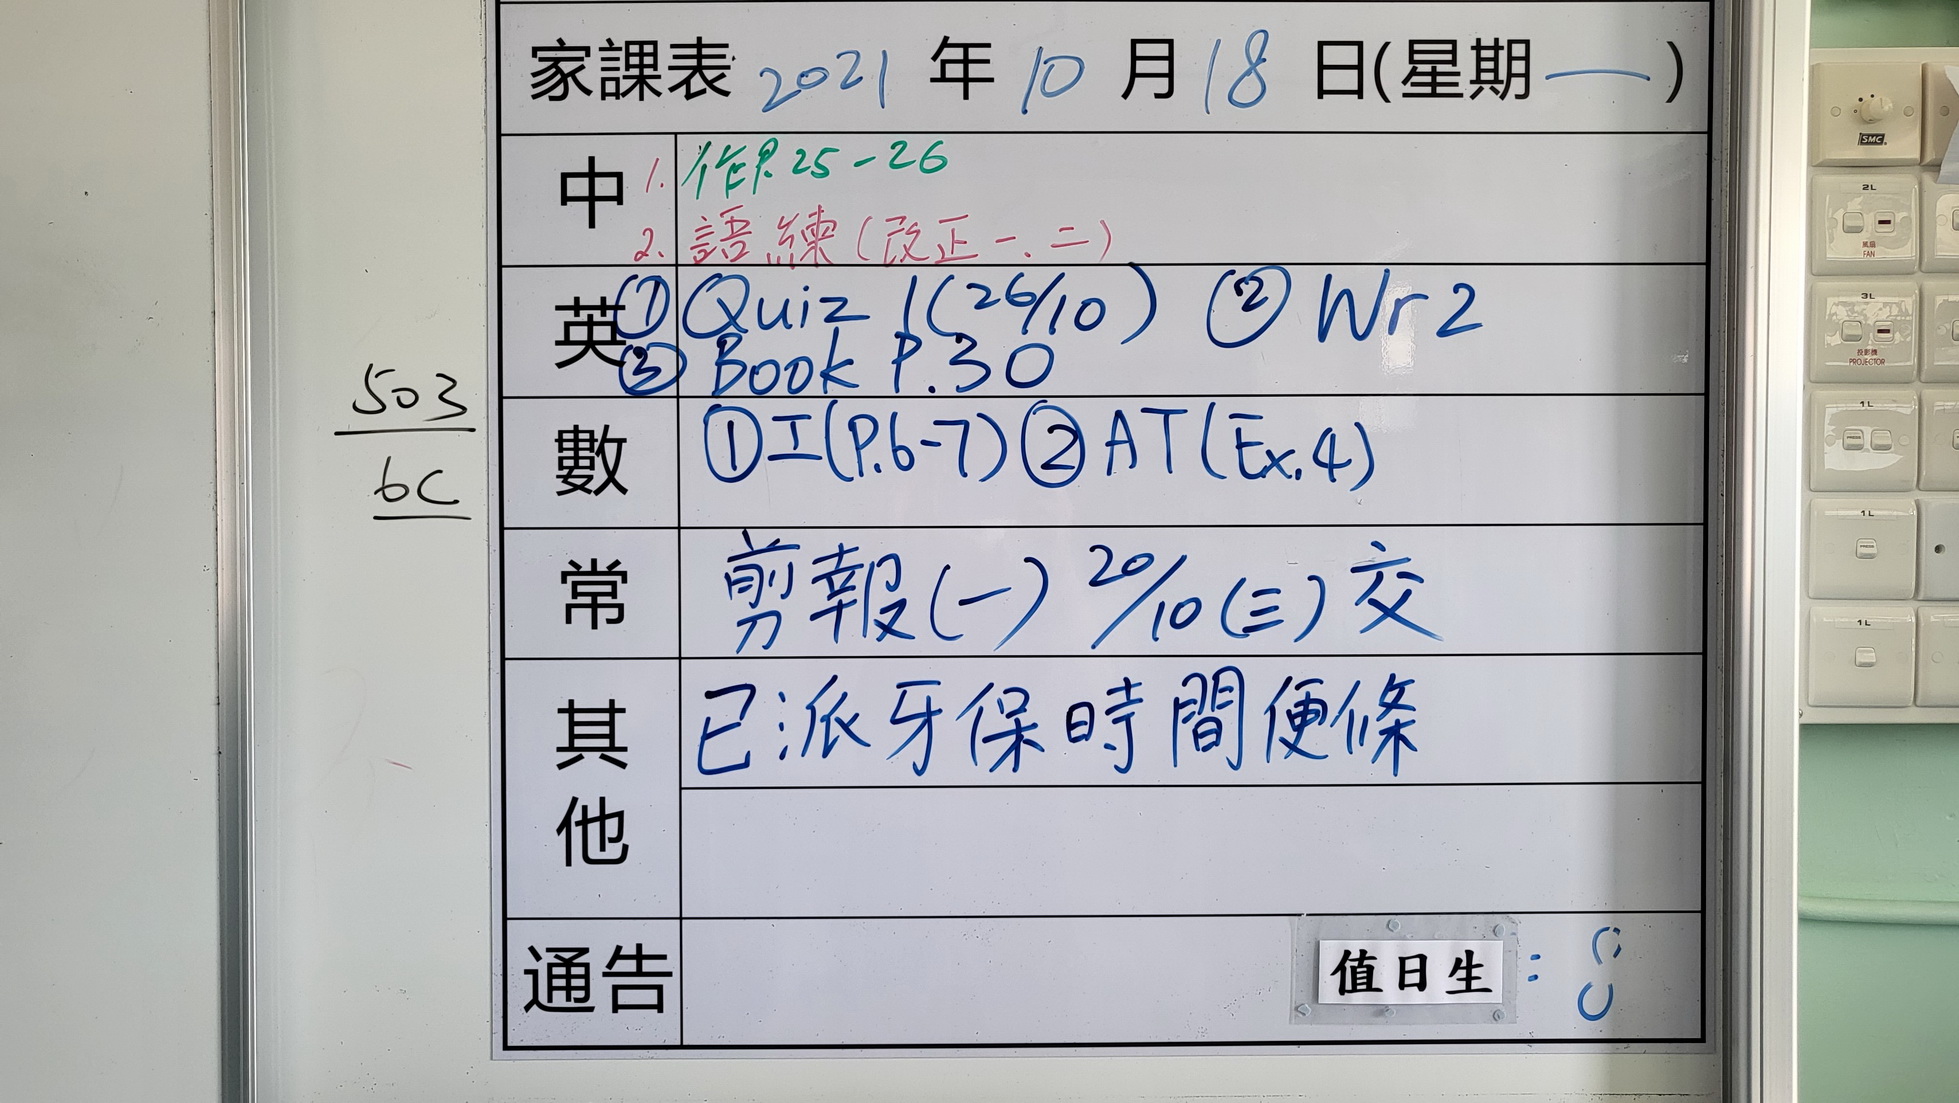 家課表 2021 年 10 月 18 日(星期一)
中 1. 作 25-26
2. 語練(改正一、二)
英 ① Quiz 1(26/10) ② Wr 2
③ Book P.30
503
6C
數 ①工(P.6-7)②AT(Ex.4)
常 剪報(一) 20/10(三)交
其他 已派牙保時間便條
通告 值日生:
SMC
2L
風扇
FAN
3L
投影機
PROJECTOR
1L
1L
1L